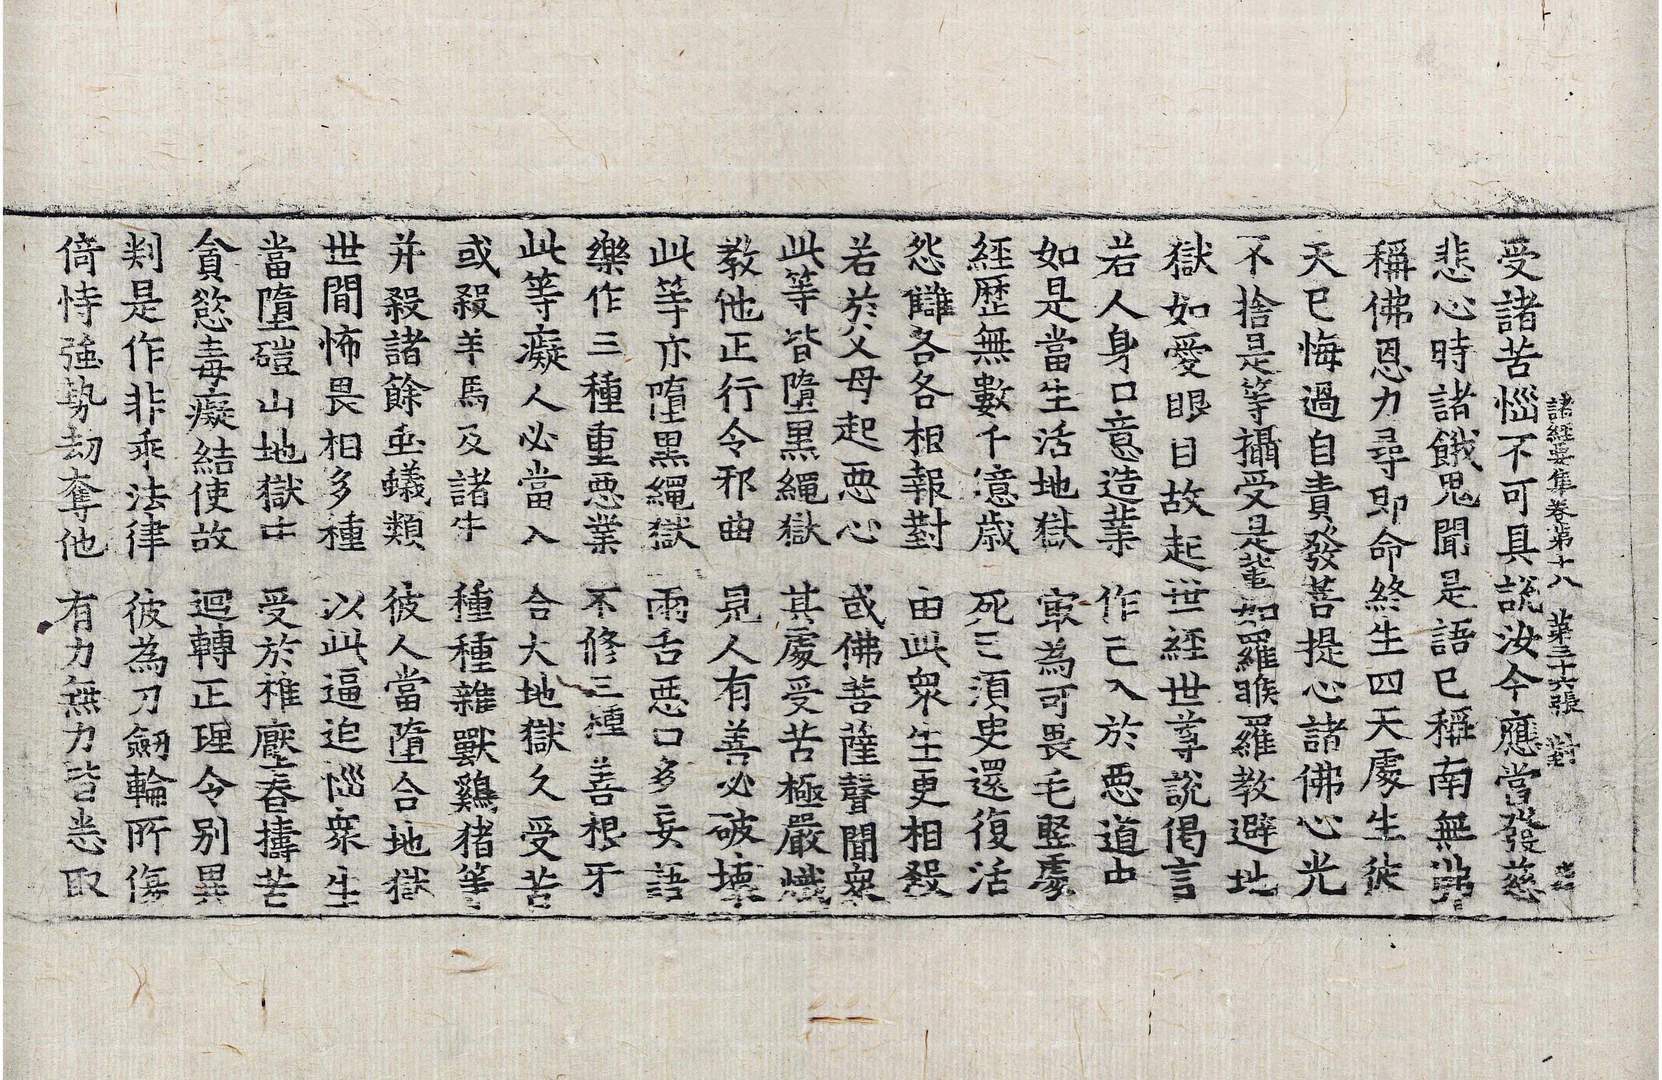 諸經要集卷第十八 第三十六張 對
受諸苦惱不可具說汝今應當發慈
悲心時諸餓鬼聞是語已稱南無佛
稱佛恩力尋即命終生四天處生彼
天已悔過自責發菩提心諸佛心光
不捨是等攝受是輩如羅睺羅教避地
獄如愛眼目故起世經世尊說偈言
若人身口意造業 作已入於惡道中
如是當生活地獄 寂為可畏毛竪處
經歷無數千億歲 死已須臾還復活
怨讎各各相報對 由此衆生更相殺
若於父母起惡心 或佛菩薩聲聞衆
此等皆墮黑繩獄 其處受苦極嚴熾
教他正行令邪曲 見人有善必破壞
此等亦墮黑繩獄 兩舌惡口多妄語
樂作三種重惡業 不修三種善根牙
此等癡人必當入 合大地獄久受苦
或殺羊馬及諸牛 種種雜獸鷄猪等
并殺諸餘虫蟻類 彼人當墮合地獄
世間怖畏相多種 以此逼迫惱衆生
當墮磑山地獄中 受於椎壓舂擣苦
貪慾毒癡結使故 迴轉正理令别異
判是作非乖法律 彼為刀劒輪所傷
倚恃強勢劫奪他 有力無力皆悉取